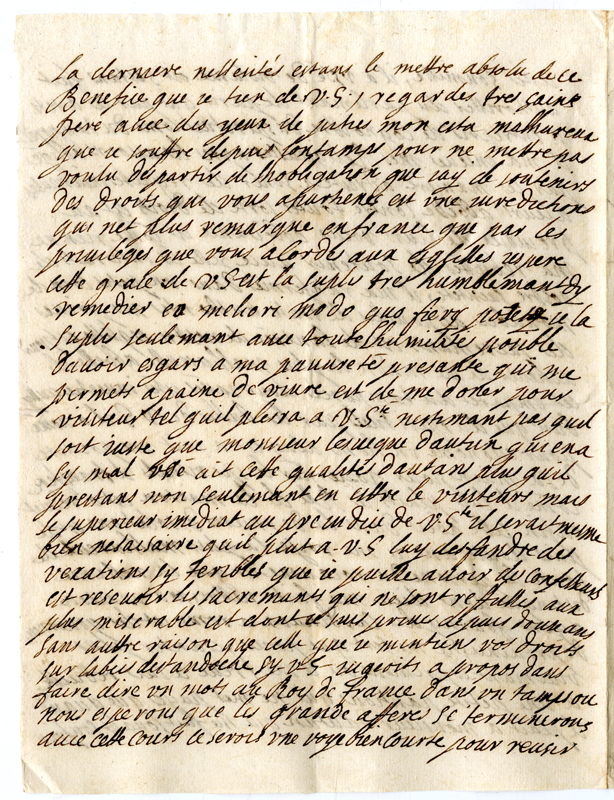 la derniere nessesités estans le mettre absolu de ce
Benefice que ie tien de V.S. regardes tres saint
pere avec des yeux de pities mon esta malhureux
que ie souffre depuis lontamps pour ne mettre pas
voulu departir de lhobligation que iay de soutenirs
des droits qui vous apartienes est une iuredictions
qui net plus remarque enfrance que par les
privileges que vous acordes aux esglises iespere
cette grace de VS est la suplie tres humblemant dy
remedier en meliori modo quo fiery potest ie la
suplie seulemant avec toute lhumilité posible
davoir esgars a ma pauvreté presante qui me
permets apaine de vivre est de me doner pour
visiteur tel quil plesra a V.Ste nestimant pas quil
soit iuste que monsieur levesque dautun qui en a
sy mal usé ait cette qualités dautans plus quil
pretans non seulemant en estre le visiteurs mais
le superieur imediat au preiudice de V.Ste il serait mesme
bien nesaisaire quil plut a V.S luy desfandre des
vexations sy teribles que ie puisse avoir des confesseurs
est resevoir les sacremants qui ne sont reffusés aux
plus miserable est dont ie suis privee depuis douse ans
sans autre raison que celle que ie mintiens vos droits
sur labeie de st andoche sy VS iugeoits a propos dans
faire dire un mots au Roy de france dans un tamps ou
nous esperons que les grande afferes se termineronts
avec cette cours ce serois une voye bien courte pour reusir